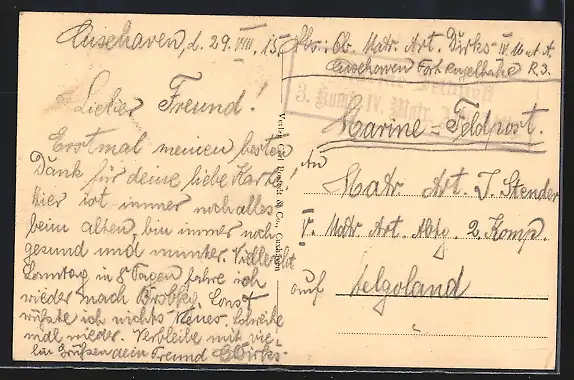 Cuxhaven, d. 29. VIII. 15.
Lieber Freund!
Erstmal meinen besten
Dank für deine liebe Karte.
Hier ist immer noch alles
beim alten, bin immer noch
gesund und munter. Vielleicht
Sonntag in 8 Tagen fahre ich
wieder nach Sonst
wüßte ich nichts Neues. Schreibe
mal wieder. Verbleibe mit vie-
len Grüßen dein Freund Dirks.
Verlag Carl & Co., Cuxhaven
Abs.: Ob. Matr. Art. Dirks IV. M. A. A.
Cuxhaven Fort R. 3.
3. Komp. IV. Matr.
Marine-Feldpost.
An
Matr. Art. J. Stender
V. Matr. Art. Abtg. 2 Komp.
auf Helgoland